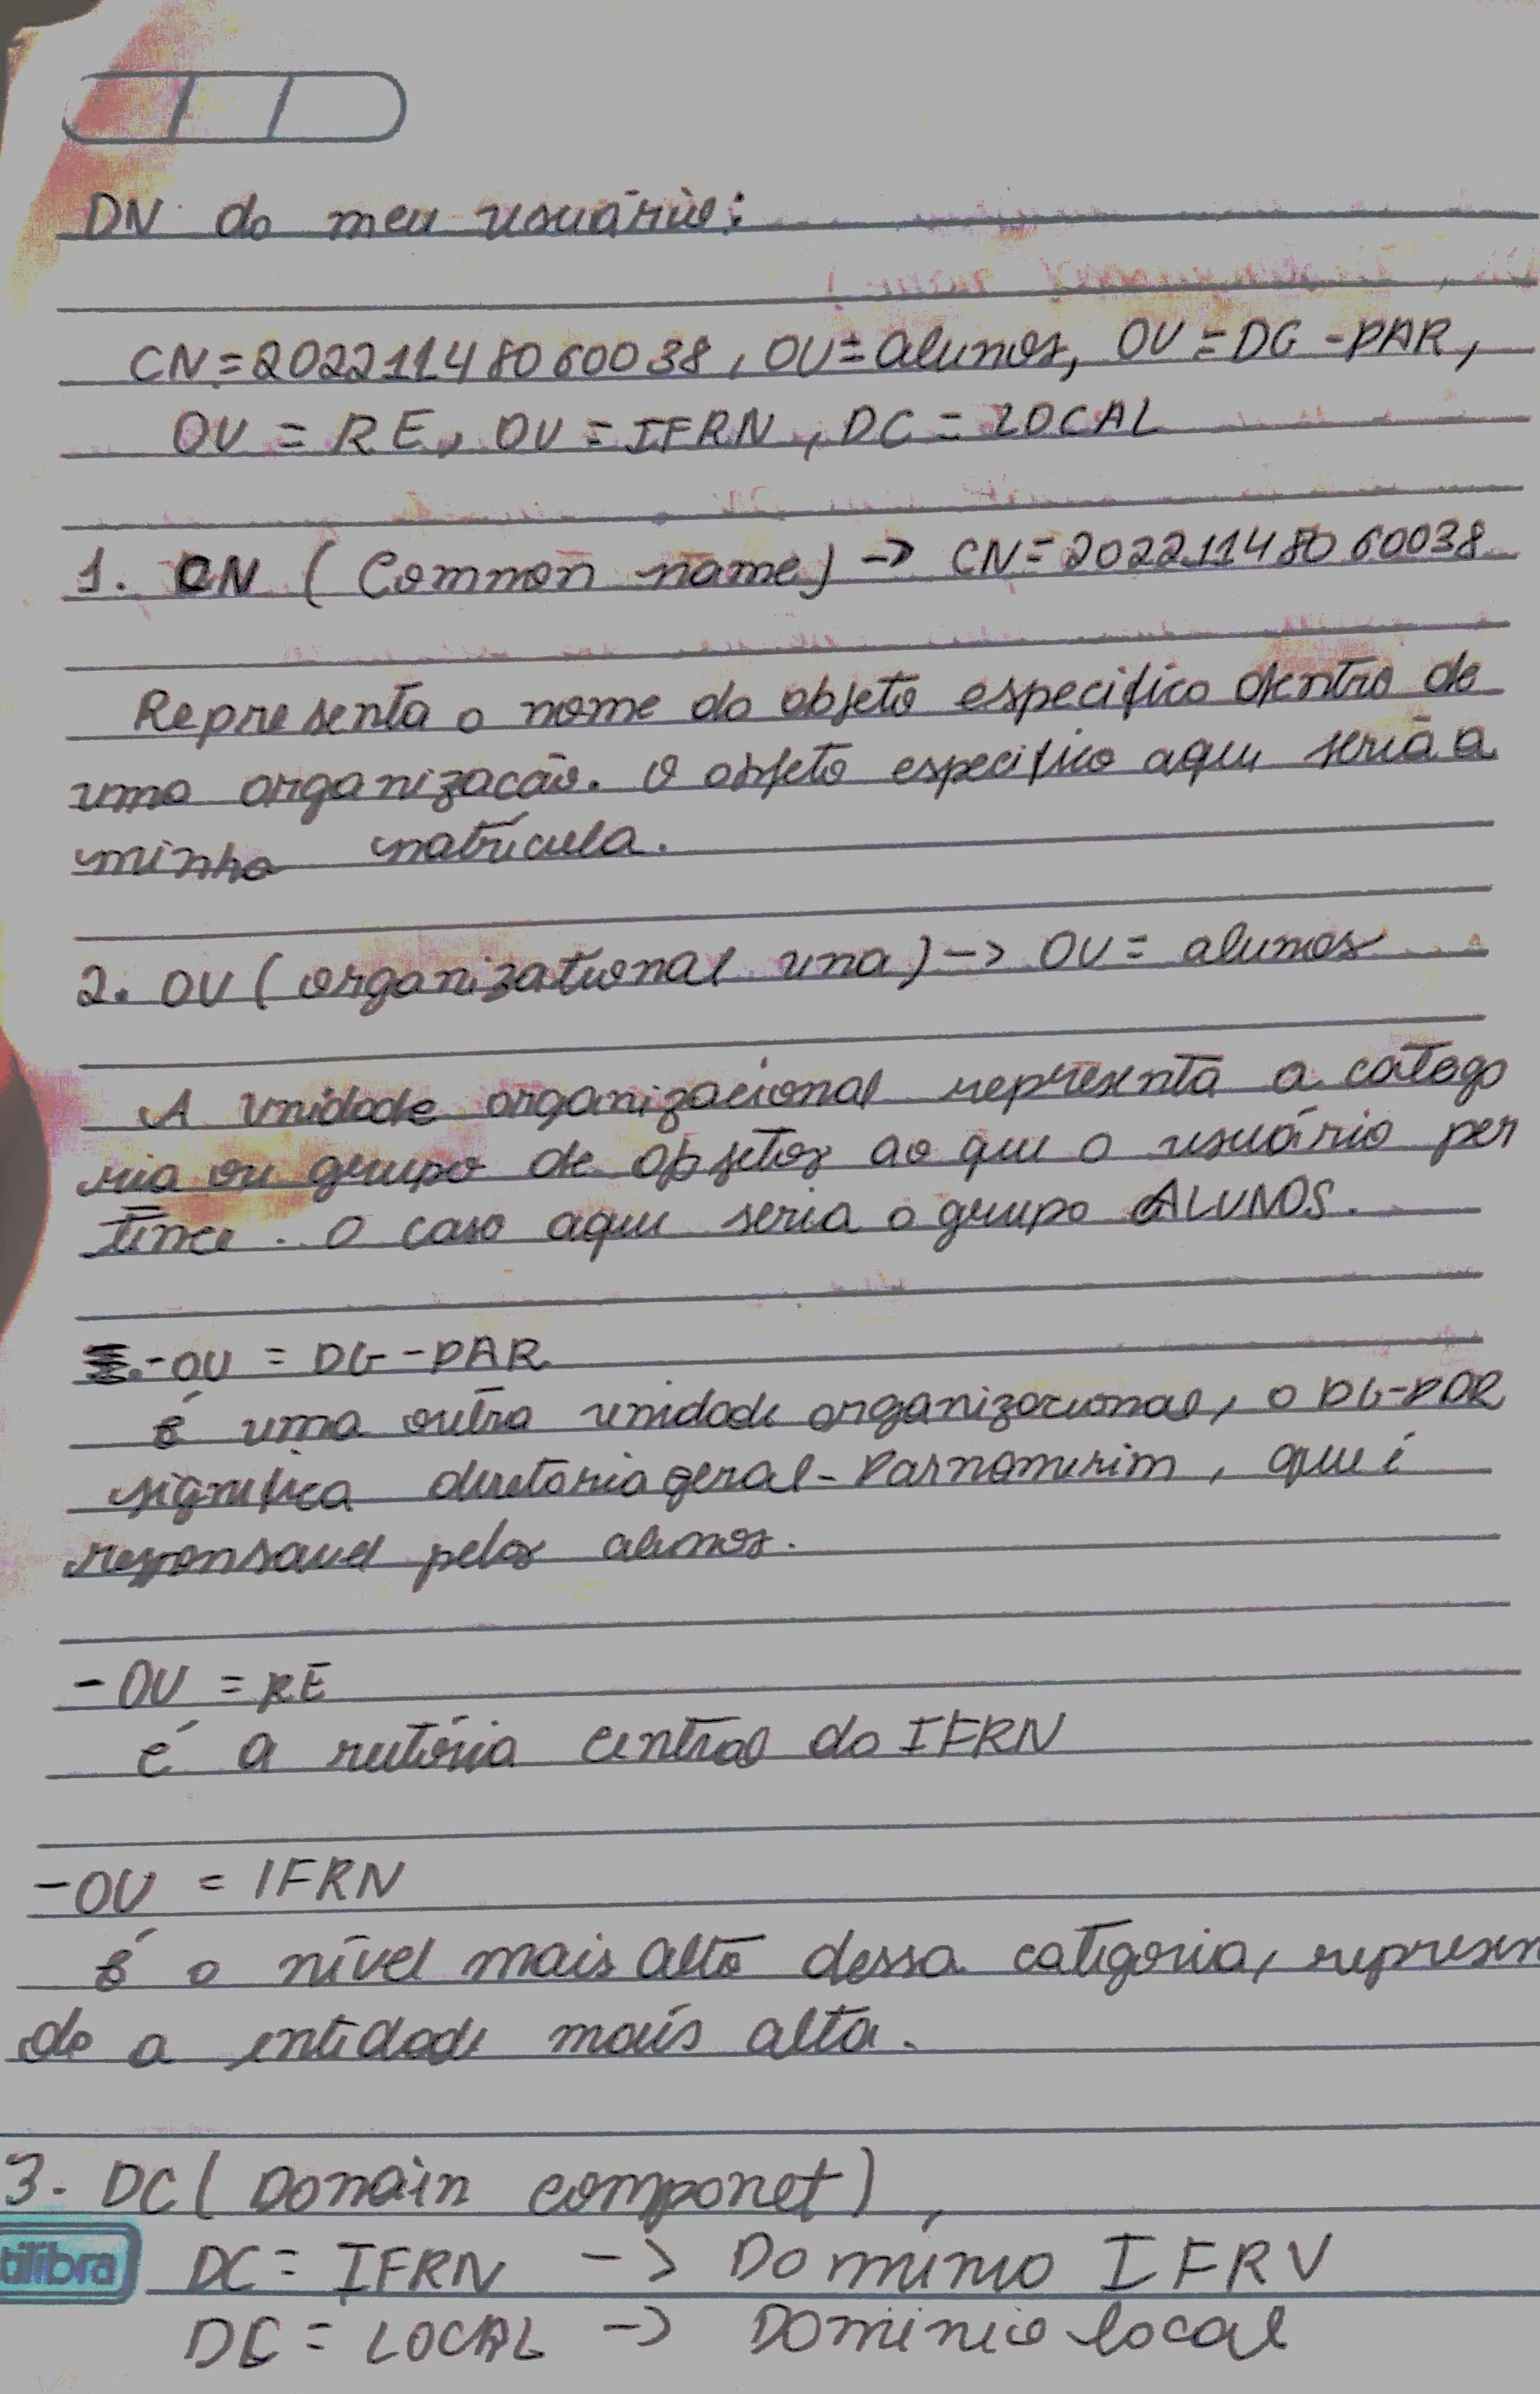 DN do meu usuário:
CN=20221148060038, OU=alunos, OU=DG-PAR,
OU = RE, OU = IFRN, DC = LOCAL
1. CN (Common name) -> CN=20221148060038
Representa o nome do objeto especifico dentro de
uma organizacão. O objeto especifico aqui seria a
minha matrícula.
2. OU (organizational una) -> OU = alunos
A unidade organizacional representa a catego
ria ou grupo de objetos ao que o usuário per
tence. O caso aqui seria o grupo ALUNOS.
-OU = DG-PAR
é uma outra unidade organizacional, o DG-PAR
significa diretoria geral-Parnamirim, que é
responsavel pelos alunos.
-OU = RE
é a reitória central do IFRN
-OU = IFRN
é o nível mais alto dessa categoria, represen
do a entidade mais alta.
3. DC (Domain componet),
tilibra
DC = IFRN -> Dominio IFRN
DC = LOCAL -> Dominio local